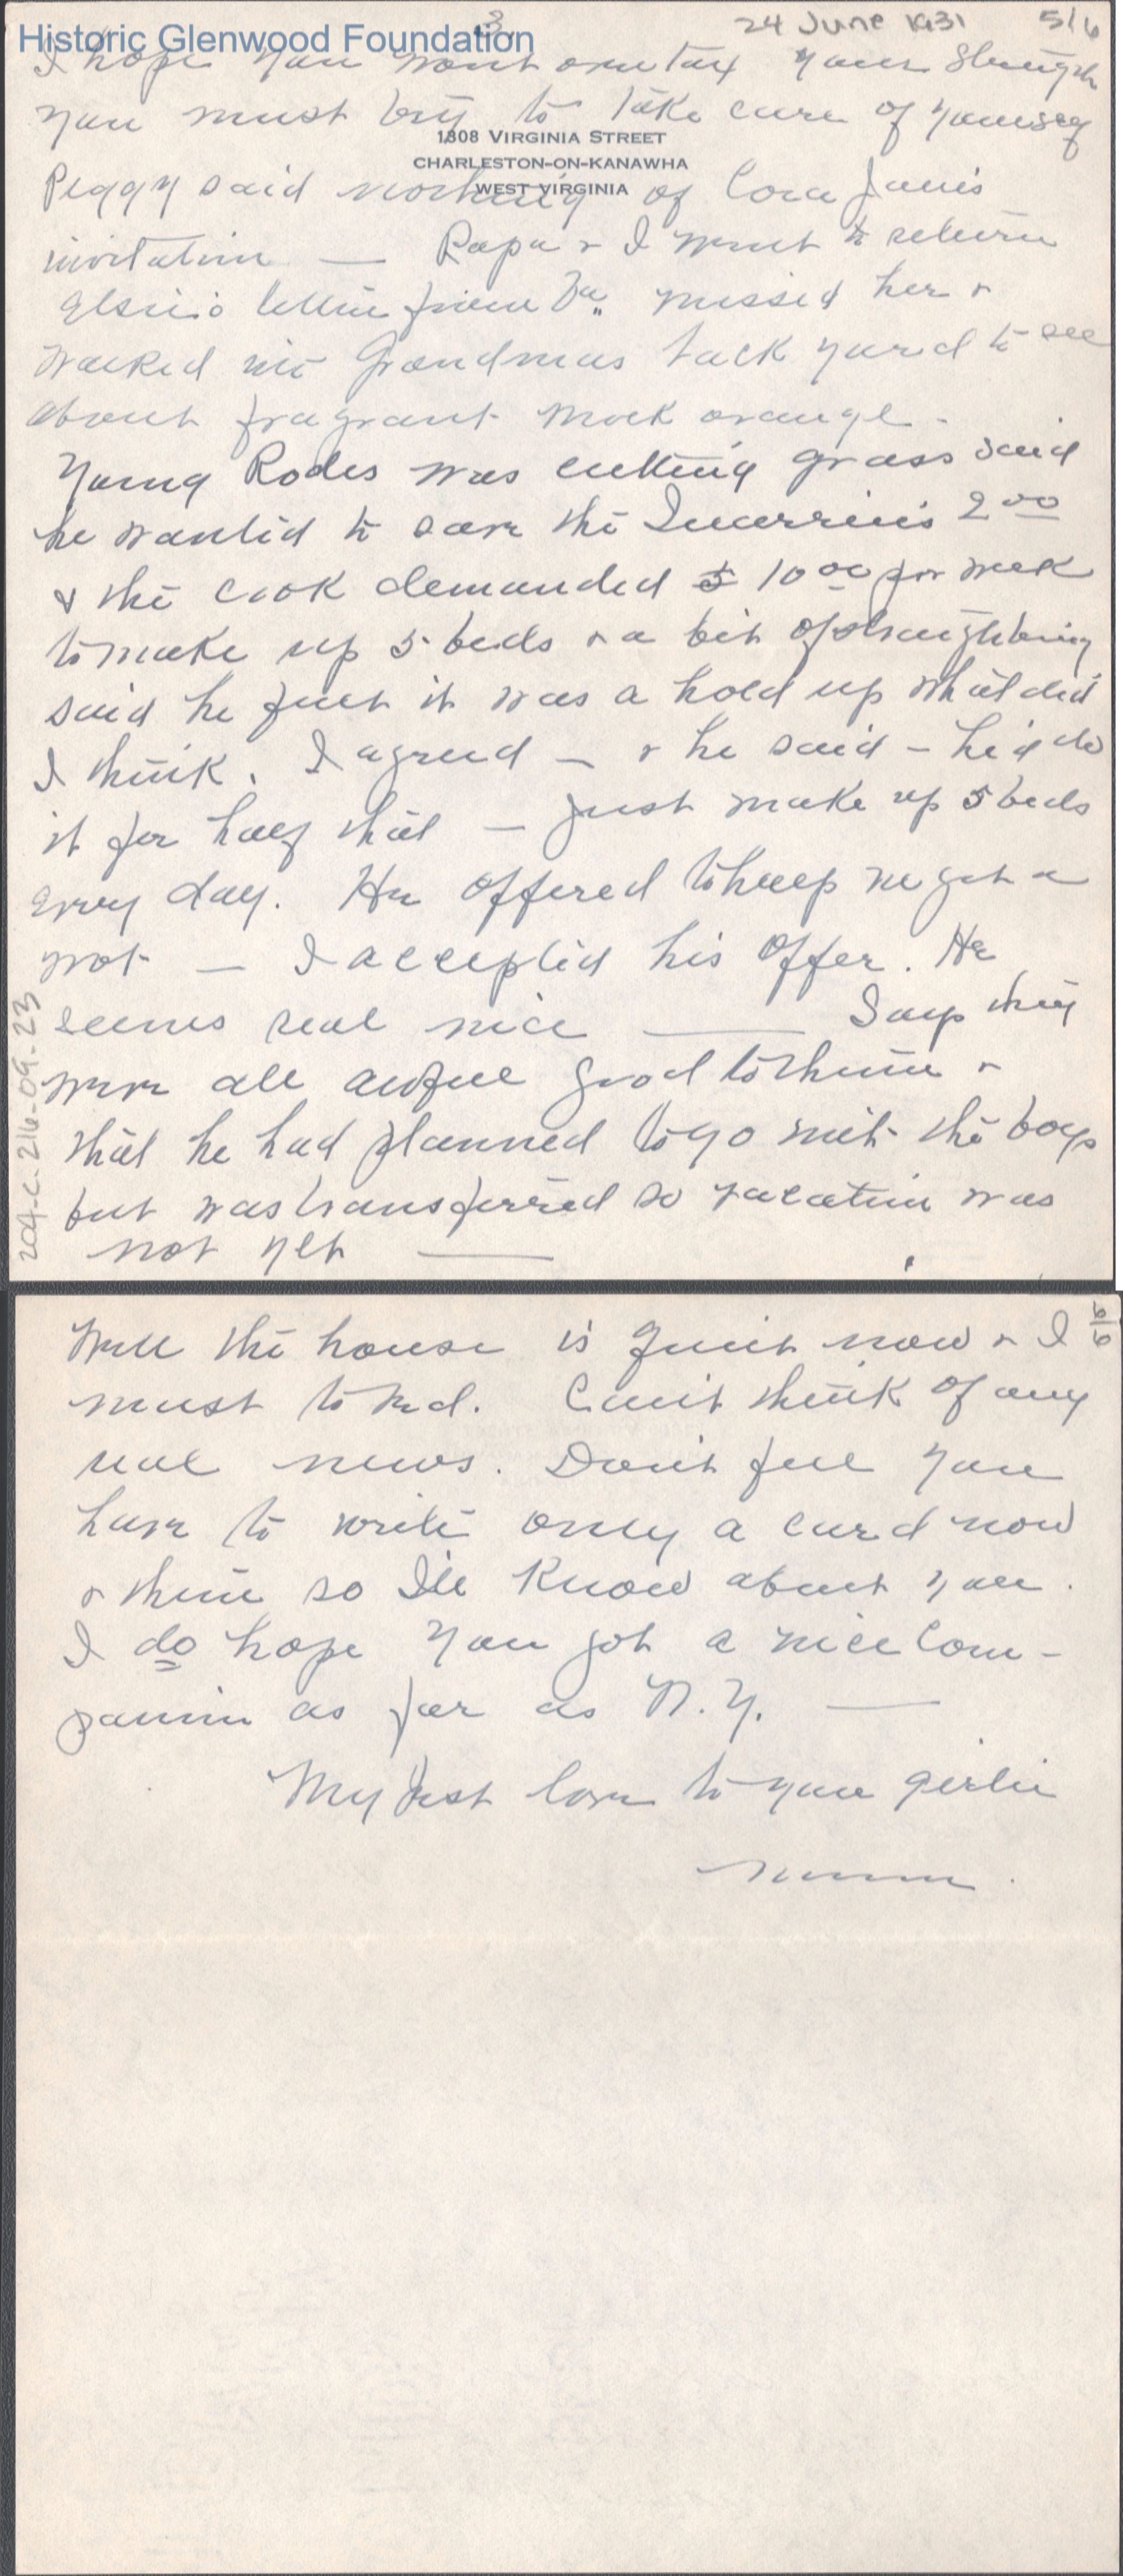 Historic Glenwood Foundation
3.
24 June 1931 5/6
I hope you wont overtax your strength
you must try to take care of yourself
1808 VIRGINIA STREET
CHARLESTON-ON-KANAWHA
WEST VIRGINIA
Peggy said nothing of Cora Janis
invitation — Papa & I went to return
Elsie's letter from Va. missed her &
walked into Grandmas back yard to see
about fragrant mock orange.
Young Rodes was cutting grass said
he wanted to save the 2 00
& the cook demanded $ 10 00 per week
to make up 5 beds & a bit of straightening
said he felt it was a hold up what did
I think. I agreed — & he said — he'd do
it for half that — Just make up 5 beds
every day. He offered to help me get a
— I accepted his offer. He
seems real nice — Says they
were all awful good to him &
that he had planned to go with the boys
but was transferred so vacation was
not yet —
204-C-216-09-23
6/6
Well the house is quiet now & I
must to bed. Can't think of any
real news. Don't feel you
have to write only a card now
& then so I'll know about you.
I do hope you got a nice com-
panion as far as N.Y. —
My best love to you girlie